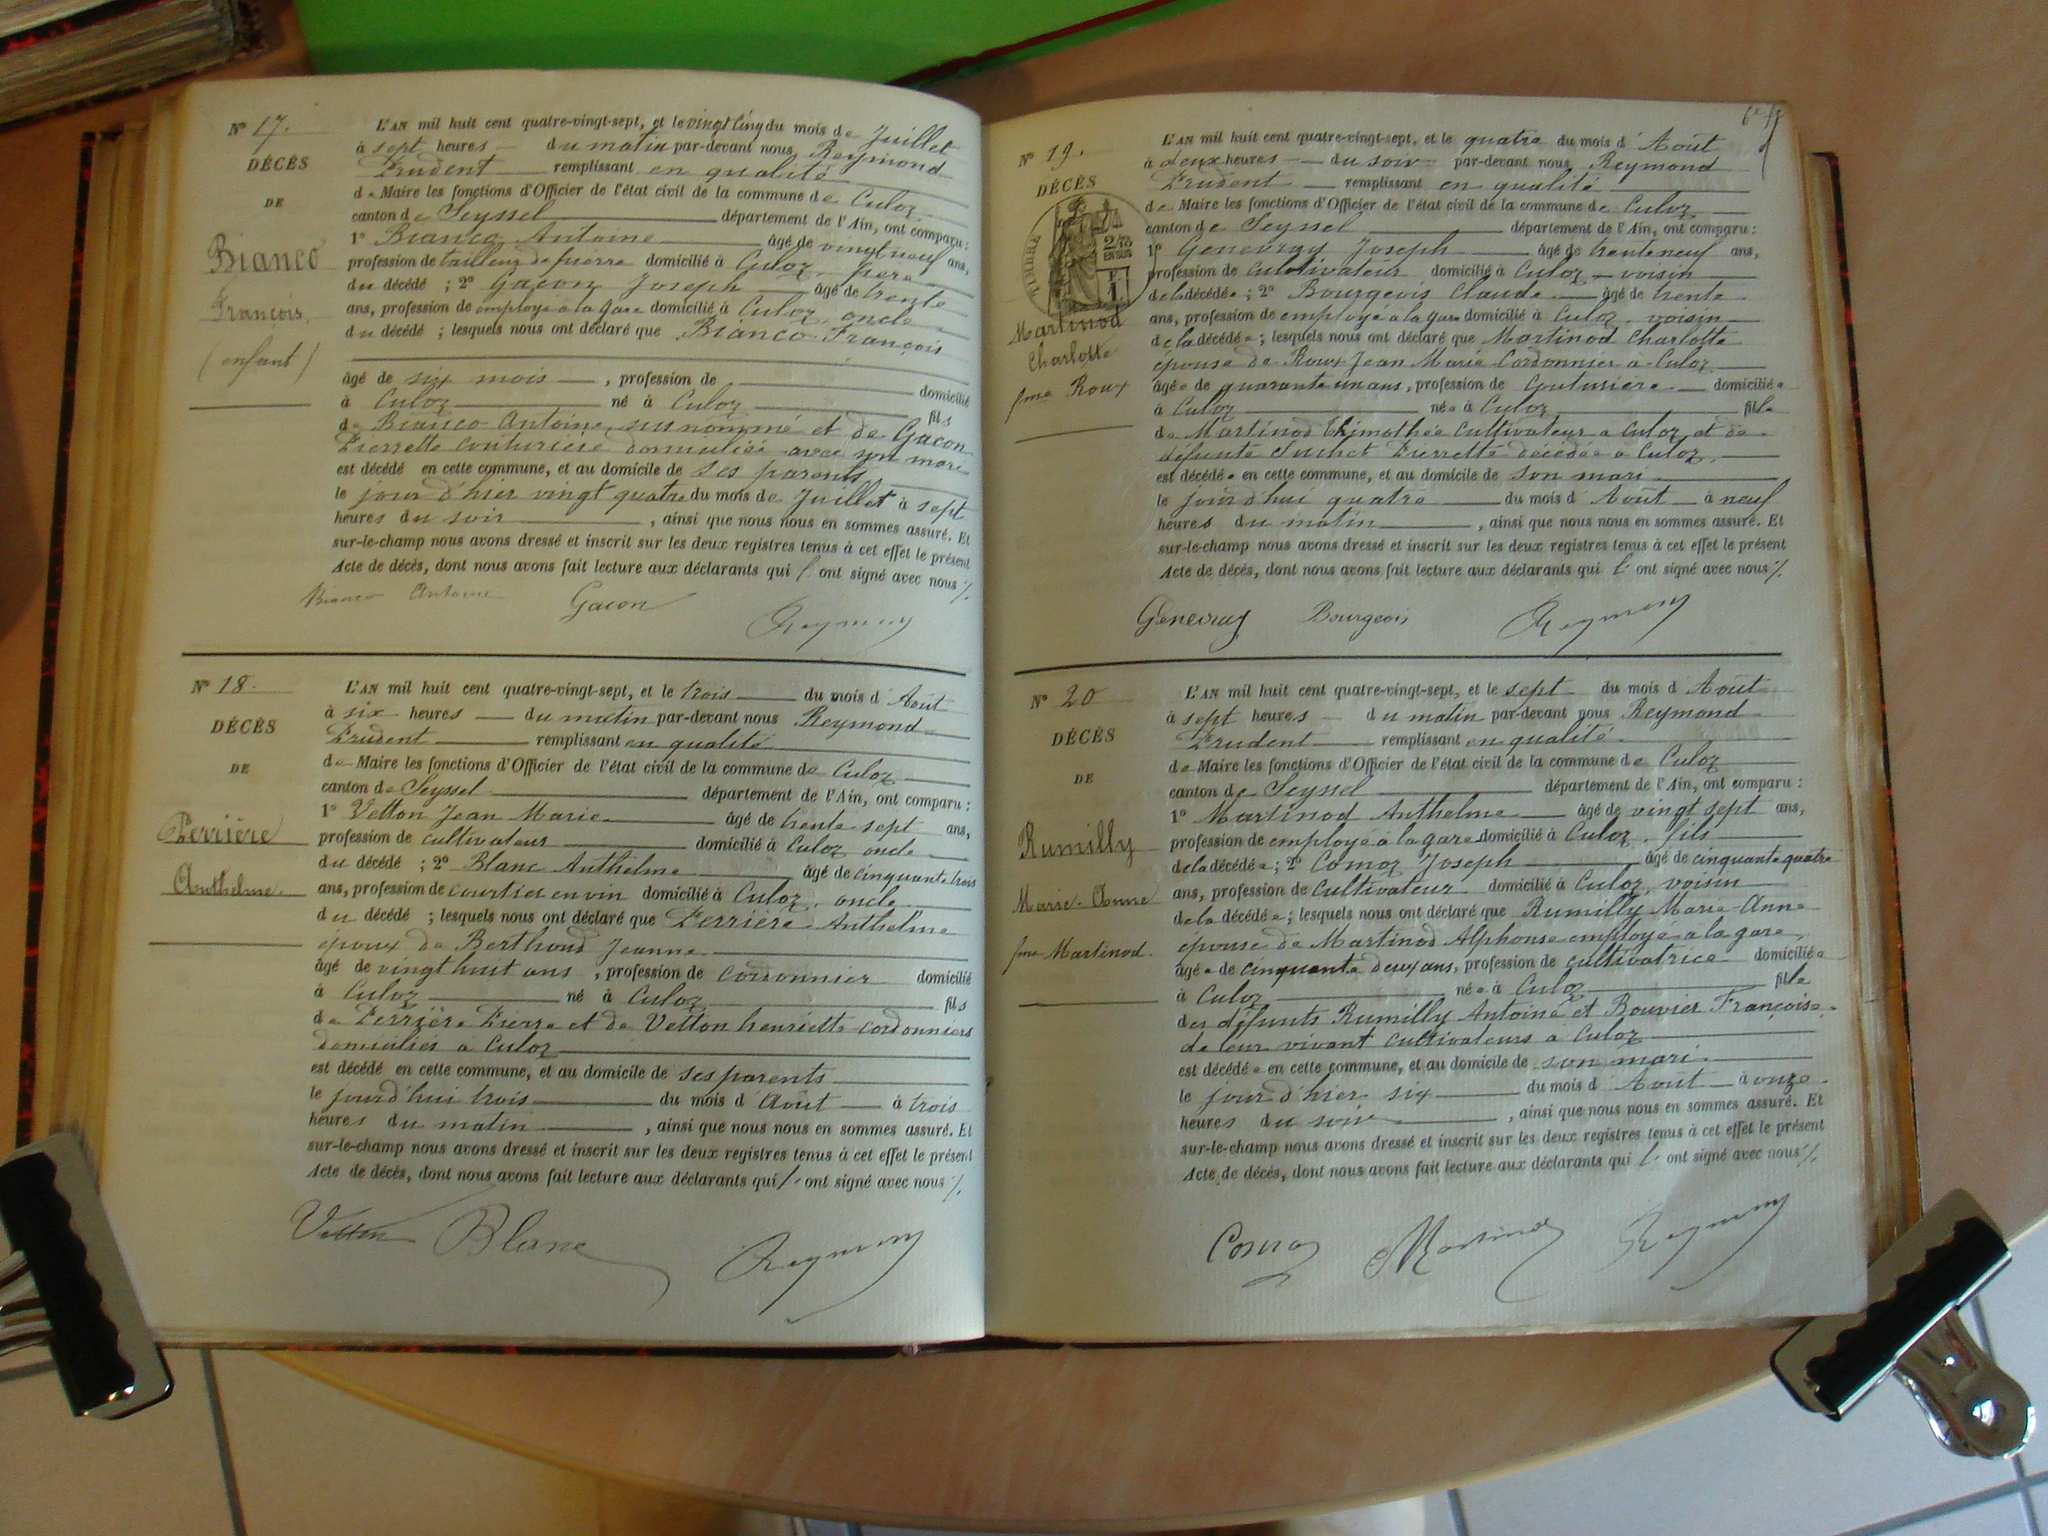 N° 17.
DÉCÈS
DE
Bianco
François
(enfant)
L'AN mil huit cent quatre-vingt-sept, et le vingt cinq du mois de Juillet
à sept heures du matin par-devant nous Reymond
Prudent remplissant en qualité
de Maire les fonctions d'Officier de l'état civil de la commune de Culoz
canton de Seyssel département de l'Ain, ont comparu :
1° Bianco Antoine âgé de vingt neuf ans,
profession de tailleur de pierre domicilié à Culoz, père
du décédé ; 2° Gacon Joseph âgé de trente
ans, profession de employé à la gare domicilié à Culoz, oncle
du décédé ; lesquels nous ont déclaré que Bianco François
âgé de six mois , profession de domicilié
à Culoz né à Culoz fils
de Bianco Antoine susnommé et de Gacon
Pierrette couturière domiciliée avec son mari
est décédé en cette commune, et au domicile de ses parents
le jour d'hier vingt quatre du mois de Juillet à sept
heures du soir , ainsi que nous nous en sommes assuré. Et
sur-le-champ nous avons dressé et inscrit sur les deux registres tenus à cet effet le présent
Acte de décès, dont nous avons fait lecture aux déclarants qui l' ont signé avec nous
Bianco Antoine Gacon Reymond
N° 18.
DÉCÈS
DE
Perrière
Anthelme
L'AN mil huit cent quatre-vingt-sept, et le trois du mois d'Août
à six heures du matin par-devant nous Reymond
Prudent remplissant en qualité
de Maire les fonctions d'Officier de l'état civil de la commune de Culoz
canton de Seyssel département de l'Ain, ont comparu :
1° Vetton Jean Marie âgé de trente sept ans,
profession de cultivateur domicilié à Culoz oncle
du décédé ; 2° Blanc Anthelme âgé de cinquante trois
ans, profession de courtier en vin domicilié à Culoz, oncle
du décédé ; lesquels nous ont déclaré que Perrière Anthelme
époux de Berthoud Jeanne
âgé de vingt huit ans , profession de cordonnier domicilié
à Culoz né à Culoz fils
de Perrière Pierre et de Vetton henriette cordonniers
domiciliés a Culoz
est décédé en cette commune, et au domicile de ses parents
le jourd'hui trois du mois d'Août à trois
heures du matin , ainsi que nous nous en sommes assuré. Et
sur-le-champ nous avons dressé et inscrit sur les deux registres tenus à cet effet le présent
Acte de décès, dont nous avons fait lecture aux déclarants qui l' ont signé avec nous
Vetton Blanc Reymond
N° 19.
DÉCÈS
TIMBRE
Martinod
Charlotte
fme Roux
L'AN mil huit cent quatre-vingt-sept, et le quatre du mois d'Août
à deux heures du soir par-devant nous Reymond
Prudent remplissant en qualité
de Maire les fonctions d'Officier de l'état civil de la commune de Culoz
canton de Seyssel département de l'Ain, ont comparu :
1° Genevray Joseph âgé de trente neuf ans,
profession de Cultivateur domicilié à Culoz voisin
de la décédée ; 2° Bourgeois Claude âgé de trente
ans, profession de employé a la gare domicilié à Culoz, voisin
de la décédée ; lesquels nous ont déclaré que Martinod Charlotte
épouse de Roux Jean Marie Cordonnier à Culoz
âgée de quarante un ans, profession de Couturière domiciliée
à Culoz née à Culoz fille
de Martinod Thimothée Cultivateur a Culoz et de
défunte Suchet Pierrette décédée a Culoz
est décédée en cette commune, et au domicile de son mari
le jourd'hui quatre du mois d'Août à neuf
heures du matin , ainsi que nous nous en sommes assuré. Et
sur-le-champ nous avons dressé et inscrit sur les deux registres tenus à cet effet le présent
Acte de décès, dont nous avons fait lecture aux déclarants qui l' ont signé avec nous
Genevray Bourgeois Reymond
N° 20
DÉCÈS
DE
Rumilly
Marie-Anne
fme Martinod.
L'AN mil huit cent quatre-vingt-sept, et le sept du mois d'Août
à sept heures du matin par-devant nous Reymond
Prudent remplissant en qualité
de Maire les fonctions d'Officier de l'état civil de la commune de Culoz
canton de Seyssel département de l'Ain, ont comparu :
1° Martinod Anthelme âgé de vingt sept ans,
profession de employé à la gare domicilié à Culoz, fils
de la décédée ; 2° Comoz Joseph âgé de cinquante quatre
ans, profession de Cultivateur domicilié à Culoz, voisin
de la décédée ; lesquels nous ont déclaré que Rumilly Marie Anne
épouse de Martinod Alphonse employé a la gare
âgée de cinquante deux ans, profession de cultivatrice domiciliée
à Culoz née à Culoz fille
des défunts Rumilly Antoine et Bouvier Françoise
de leur vivant cultivateurs à Culoz
est décédée en cette commune, et au domicile de son mari
le jour d'hier six du mois d'Août à onze
heures du soir , ainsi que nous nous en sommes assuré. Et
sur-le-champ nous avons dressé et inscrit sur les deux registres tenus à cet effet le présent
Acte de décès, dont nous avons fait lecture aux déclarants qui l' ont signé avec nous
Comoz Martinod Reymond